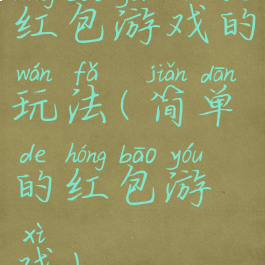 红包游戏的
wán fǎ jiǎn dān
玩法(简单
de hóng bāo yóu
的红包游
xì
戏)